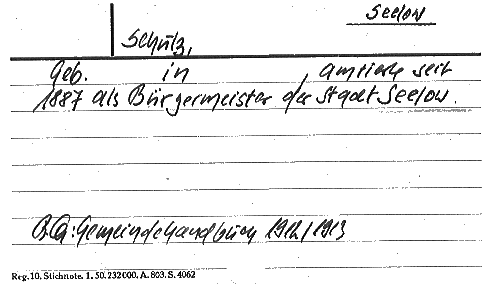 Seelow
Schulz,
Geb. in , amtierte seit
1887 als Bürgermeister der Stadt Seelow.
Q.: Gemeindehandbuch 1912/1913
Reg. 10. Stichnote. 1. 50. 232000. A. 803. S. 4062